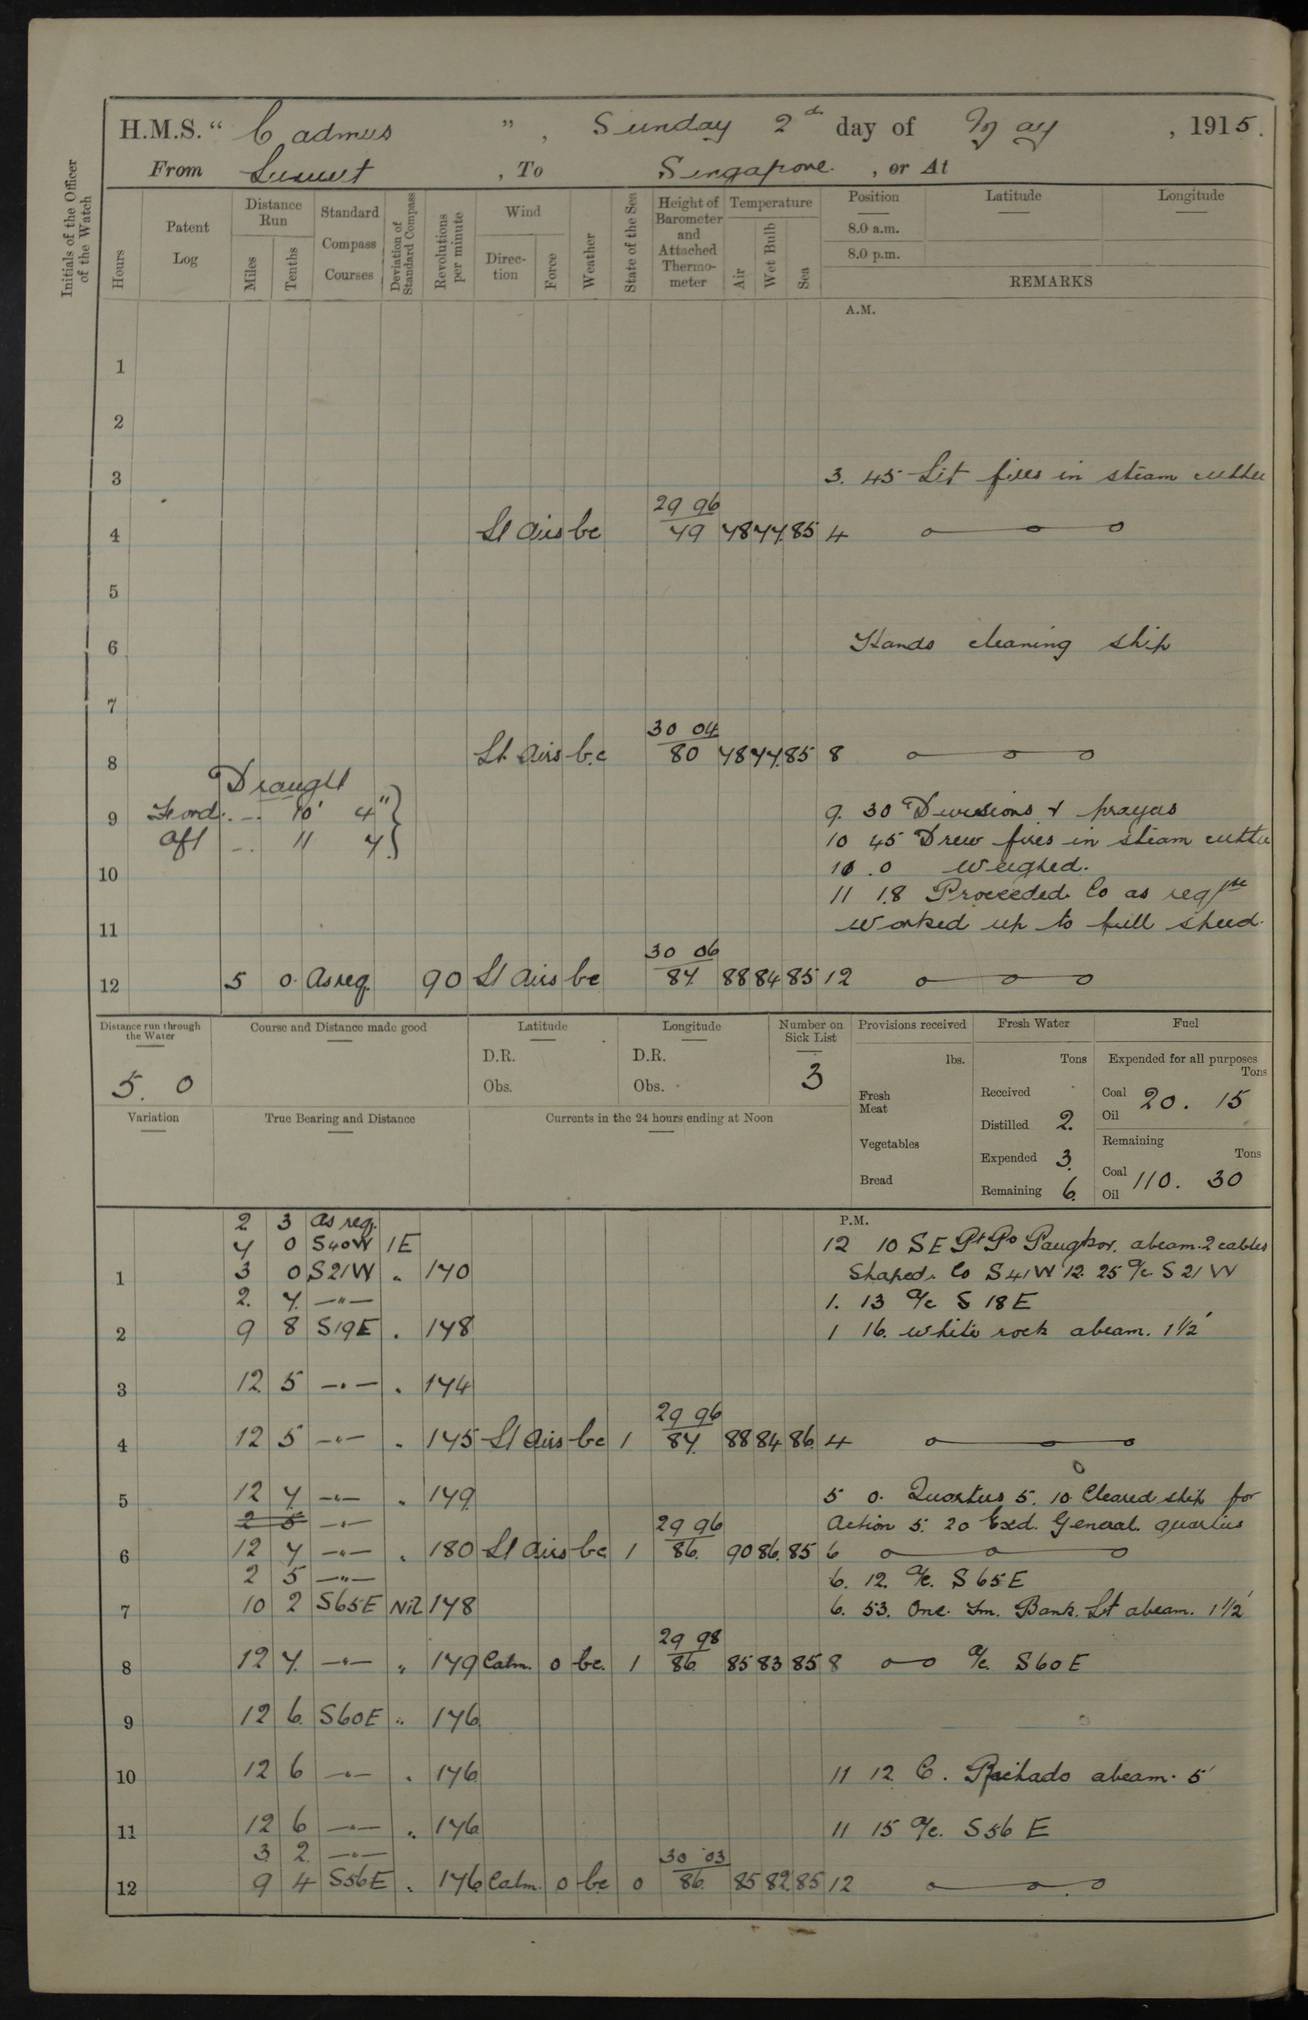 H.M.S. " Cadmus ", Sunday 2nd day of May, 1915.
From Lumut, To Singapore, or At
Initials of the Officer of the Watch
Hours
Patent Log
Distance Run
Miles
Tenths
Standard Compass Courses
Deviation of Standard Compass
Revolutions per minute
Wind
Direction
Force
Weather
State of the Sea
Height of Barometer and Attached Thermometer
Temperature
Air
Wet Bulb
Sea
Position
8.0 a.m.
8.0 p.m.
Latitude
Longitude
REMARKS
A.M.
1
2
3 3. 45 Lit fires in steam cutter
29 96
4 Lt Airs bc 79 78 77 85 4
5
6 Hands cleaning ship
7
30 04
8 Lt Airs b.c 80 78 77 85 8
Draught
9 Ford. 10' 4" 9. 30 Divisions & prayers
Aft 11 7. 10 45 Drew fires in steam cutter
10 .0 Weighed.
10
11 18 Proceeded. Co as reqste
11 Worked up to full speed.
30 06
12 5 0. As req. 90 Lt Airs bc 87. 88 84 85 12
Distance run through the Water
5. 0
Course and Distance made good
Latitude
D.R.
Obs.
Longitude
D.R.
Obs.
Number on Sick List
3
Provisions received
lbs.
Fresh Meat
Vegetables
Bread
Fresh Water
Tons
Received
Distilled 2.
Expended 3.
Remaining 6.
Fuel
Expended for all purposes
Tons
Coal 20. 15
Oil
Remaining
Tons
Coal 110. 30
Oil
Variation
True Bearing and Distance
Currents in the 24 hours ending at Noon
P.M.
2 3 As req.
7 0 S40W 1E 12 10 SE Pt Po Pangkor. abeam. 2 cables
1 3 0 S21W " 170 Shaped. Co S41W 12. 25 a/c S21W
2. 7. —"— 1. 13 a/c S 18 E
2 9 8 S19E . 178 1 16. White rock abeam. 1½'
3 12 5 —"— . 174
29 96
4 12 5 —"— . 175 Lt Airs bc 1 87. 88 84 86 4
5 12 7 —"— . 179 5 0. Quarters 5. 10 Cleared ship for
2 5 —"— 29 96 Action 5. 20 Exd. General quarters
6 12 7 —"— . 180 Lt Airs bc 1 86. 90 86. 85 6
2 5 —"— 6. 12. a/c. S65E
7 10 2 S65E Nil 178 6. 53. One. Fm. Bank. Lt abeam. 1½'
29 98
8 12 7. —"— " 179 Calm. 0 bc. 1 86. 85 83 85 8 a/c. S60E
9 12 6. S60E " 176
10 12 6 —"— . 176 11 12 C. Rachado abeam. 5'
11 12 6 —"— . 176 11 15 a/c. S56 E
3 2 —"— 30 03
12 9 4 S56E . 176 Calm. 0 bc 0 86. 85 82 85 12